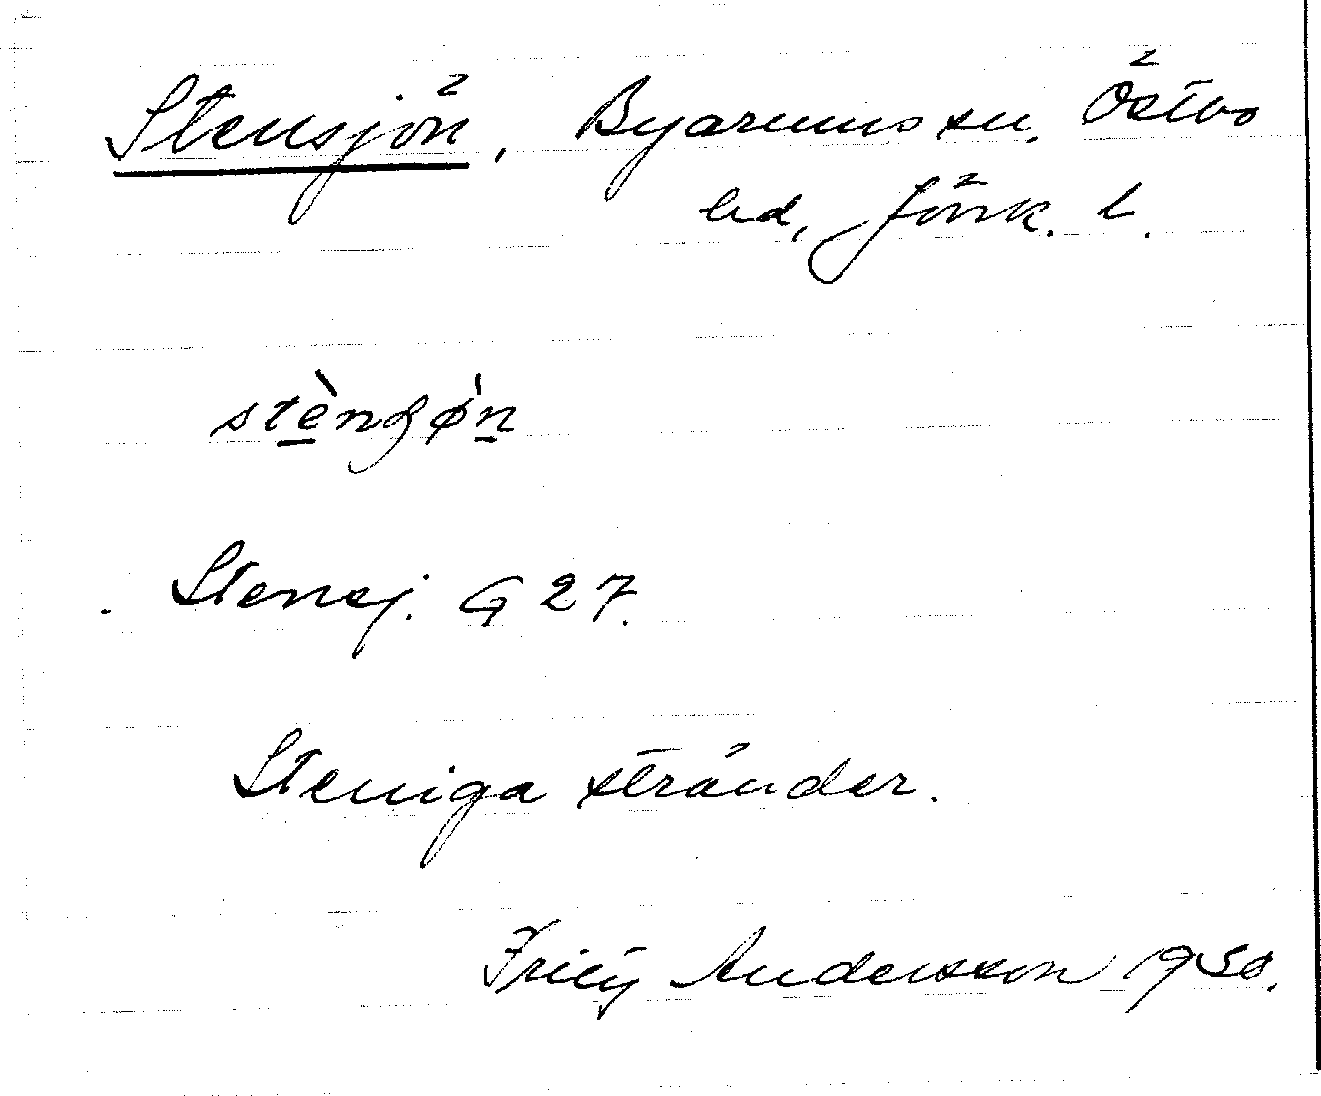 Stensjön, Byarums sn, Östbo
hd, Jönk. l.
stènʒø'n
Stensj. G 27.
Steniga stränder.
Andersson 1930.